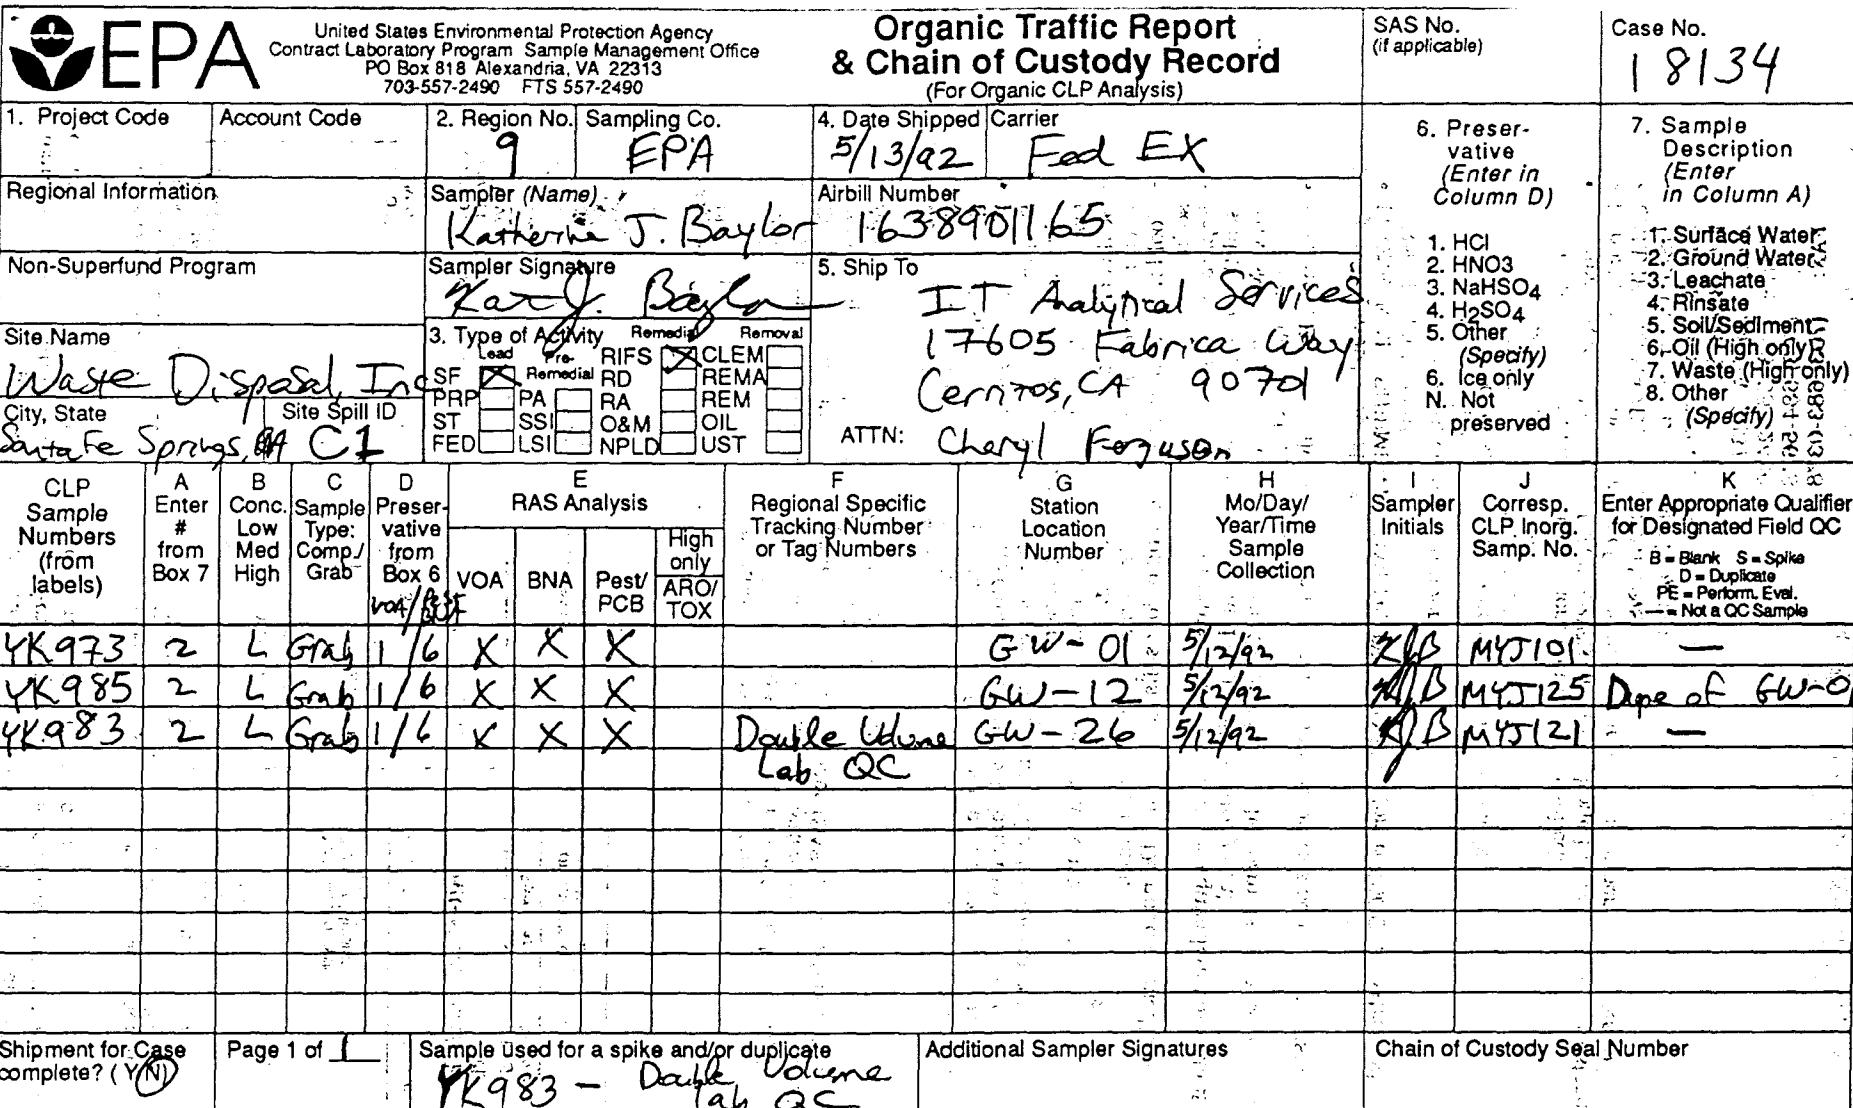 EPA
United States Environmental Protection Agency
Contract Laboratory Program Sample Management Office
PO Box 818 Alexandria, VA 22313
703-557-2490 FTS 557-2490
Organic Traffic Report
& Chain of Custody Record
(For Organic CLP Analysis)
SAS No.
(if applicable)
Case No.
18134
1. Project Code
Account Code
2. Region No.
9
Sampling Co.
EPA
4. Date Shipped
5/13/92
Carrier
Fed EX
Regional Information
Sampler (Name)
Katherine J. Baylor
Airbill Number
1638901165
Non-Superfund Program
Sampler Signature
Kat J. Baylor
5. Ship To
IT Analytical Services
17605 Fabrica Way
Cerritos, CA 90701
ATTN: Cheryl Ferguson
Site Name
Waste Disposal, Inc
City, State
Santa Fe Springs, CA
Site Spill ID
C1
3. Type of Activity Remedial Removal
Lead Pre- RIFS X CLEM
SF X Remedial RD REMA
PRP PA RA REM
ST SSI O&M OIL
FED LSI NPLD UST
6. Preser-
vative
(Enter in
Column D)
1. HCl
2. HNO3
3. NaHSO4
4. H2SO4
5. Other
(Specify)
6. Ice only
N. Not
preserved
7. Sample
Description
(Enter
in Column A)
1. Surface Water
2. Ground Water
3. Leachate
4. Rinsate
5. Soil/Sediment
6. Oil (High only)
7. Waste (High only)
8. Other
(Specify)
CLP
Sample
Numbers
(from
labels)
A
Enter
#
from
Box 7
B
Conc.
Low
Med
High
C
Sample
Type:
Comp./
Grab
D
Preser-
vative
from
Box 6
E
RAS Analysis
VOA
BNA
Pest/
PCB
High
only
ARO/
TOX
F
Regional Specific
Tracking Number
or Tag Numbers
G
Station
Location
Number
H
Mo/Day/
Year/Time
Sample
Collection
I
Sampler
Initials
J
Corresp.
CLP Inorg.
Samp. No.
K
Enter Appropriate Qualifier
for Designated Field QC
B = Blank S = Spike
D = Duplicate
PE = Perform. Eval.
— = Not a QC Sample
YK973 2 L Grab 1/6 X X X GW-01 5/12/92 KJB MYJ101 —
YK985 2 L Grab 1/6 X X X GW-12 5/12/92 KJB MYJ125 Dupe of GW-0
YK983 2 L Grab 1/6 X X X Double Volume GW-26 5/12/92 KJB MYJ121 —
Lab QC
Shipment for Case
complete? (Y/N)
Page 1 of 1
Sample used for a spike and/or duplicate
YK983 - Double Volume
lab QC
Additional Sampler Signatures
Chain of Custody Seal Number